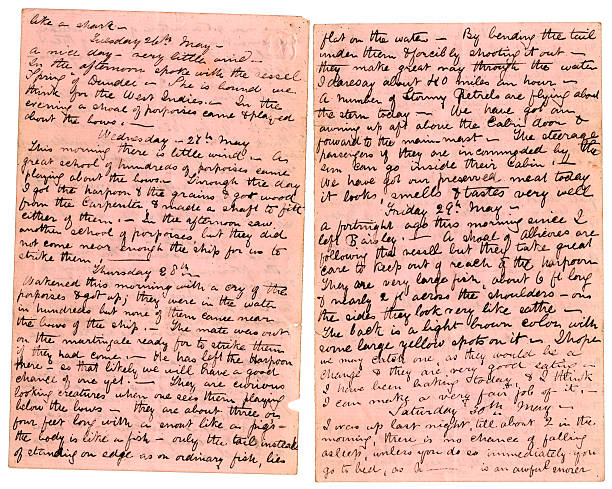 like a shark —
Tuesday 26th May —
A nice day — very little wind —
In the afternoon spoke with the vessel
Spring of Dundee — She is bound we
think for the West Indies. — In the
evening a shoal of porpoises came & played
about the bows. —
Wednesday — 27th May
This morning there is little wind — A
great school of hundreds of porpoises came
playing about the bows — Through the day
I got the harpoon & the grains & got wood
from the Carpenter & made a shaft to fit
either of them. — In the afternoon saw
another school of porpoises, but they did
not come near enough the ship for us to
strike them. —
Thursday 28th
Wakened this morning with a cry of the
porpoises & got up, they were in the water
in hundreds but none of them came near
the bows of the ship. — The mate was out
on the martingale ready for to strike them
if they had come. — He has left the harpoon
there — so that likely we will have a good
chance of one yet. — They are curious
looking creatures when one sees them playing
below the bows — they are about three or
four feet long with a snout like a pigs —
the body is like a fish — only the tail instead
of standing on edge as on ordinary fish, lies
flat on the water — By bending the tail
under them & forcibly shooting it out —
they make great way through the water
I daresay about 40 miles an hour —
A number of Stormy Petrels are flying about
the stern today — We have got an
awning up aft above the Cabin door &
forward to the main mast — The steerage
passengers if they are incommoded by the
sun can go inside their Cabin. —
We have got our preserved meat today
it looks, smells & tastes very well
Friday 29th May —
A fortnight ago this morning since I
left — A shoal of are
following the vessel but they take great
care to keep out of reach of the harpoon
They are very large fish, about 6 ft long
& nearly 2 ft across the shoulders — on
the sides they look very like
The back is a light brown color with
some large yellow spots on it — I hope
we may catch one, as they would be a
change & they are very good eating —
I have been baking today, & I think
I can make a very fair job of it. —
Saturday 30th May —
I was up last night, till about 2 in the
morning, there is no chance of falling
asleep, unless you do so immediately you
go to bed, as — is an awful snorer